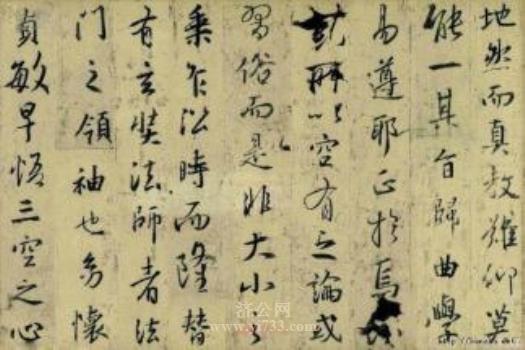 地然而真教難仰莫
能一其旨歸曲學
易遵耶正於焉
以空有之論或
習俗而是非大小之
乘乍沿時而隆替
有玄奘法師者法
門之領袖也幼懷
貞敏早悟三空之心
济公网